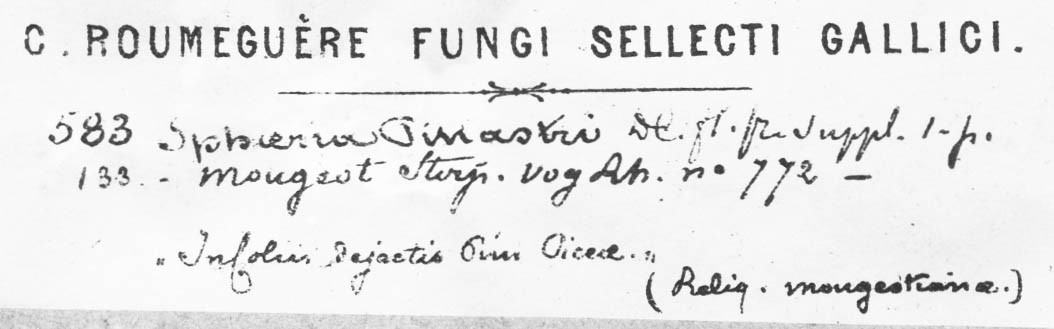 C. ROUMEGUÈRE FUNGI SELLECTI GALLICI.
583 Sphaeria Pinastri DC. fl. fr. Suppl. 1. p.
133. - Mougeot Stirp. Vog Rh. no 772 —
„ In foliis dejectis Pini Piceae. „
(Reliq. mougeotianae.)